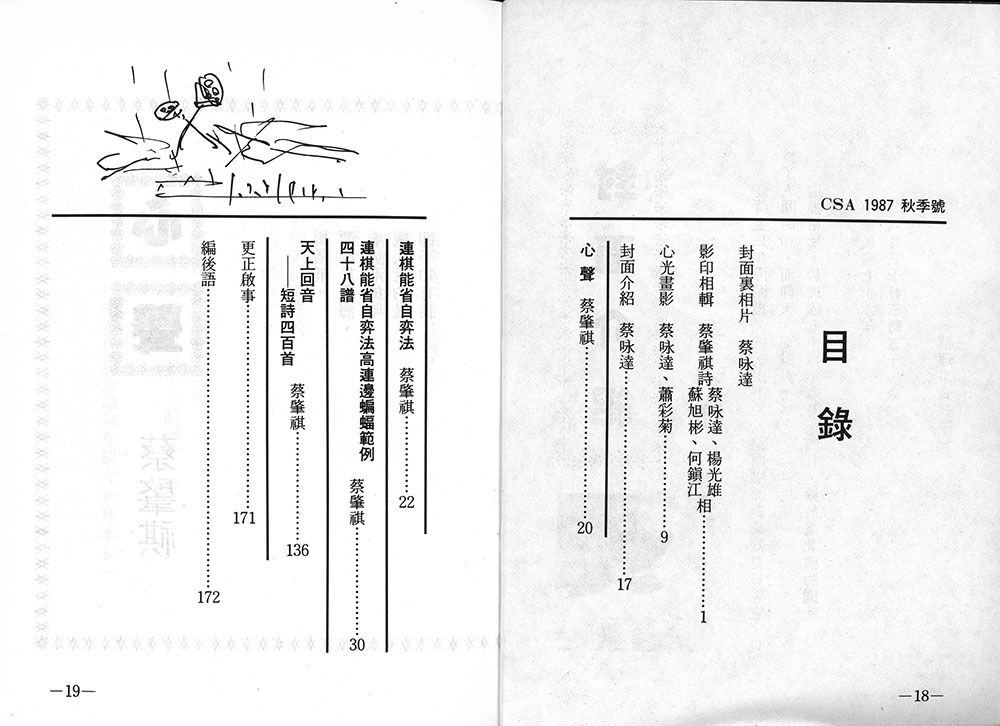 CSA 1987 秋季號
目錄
封面裏相片 蔡咏達
影印相輯 蔡肇祺詩 蔡咏達、楊光雄 蘇旭彬、何鎭江 相……1
心光畫影 蔡咏達、蕭彩菊……9
封面介紹 蔡咏達……17
心聲 蔡肇祺……20
—18—
連棋能省自弈法 蔡肇祺……22
連棋能省自弈法高連邊蝙蝠範例
四十八譜 蔡肇祺……30
天上回音
——短詩四百首 蔡肇祺……136
更正啟事……171
編後語……172
—19—